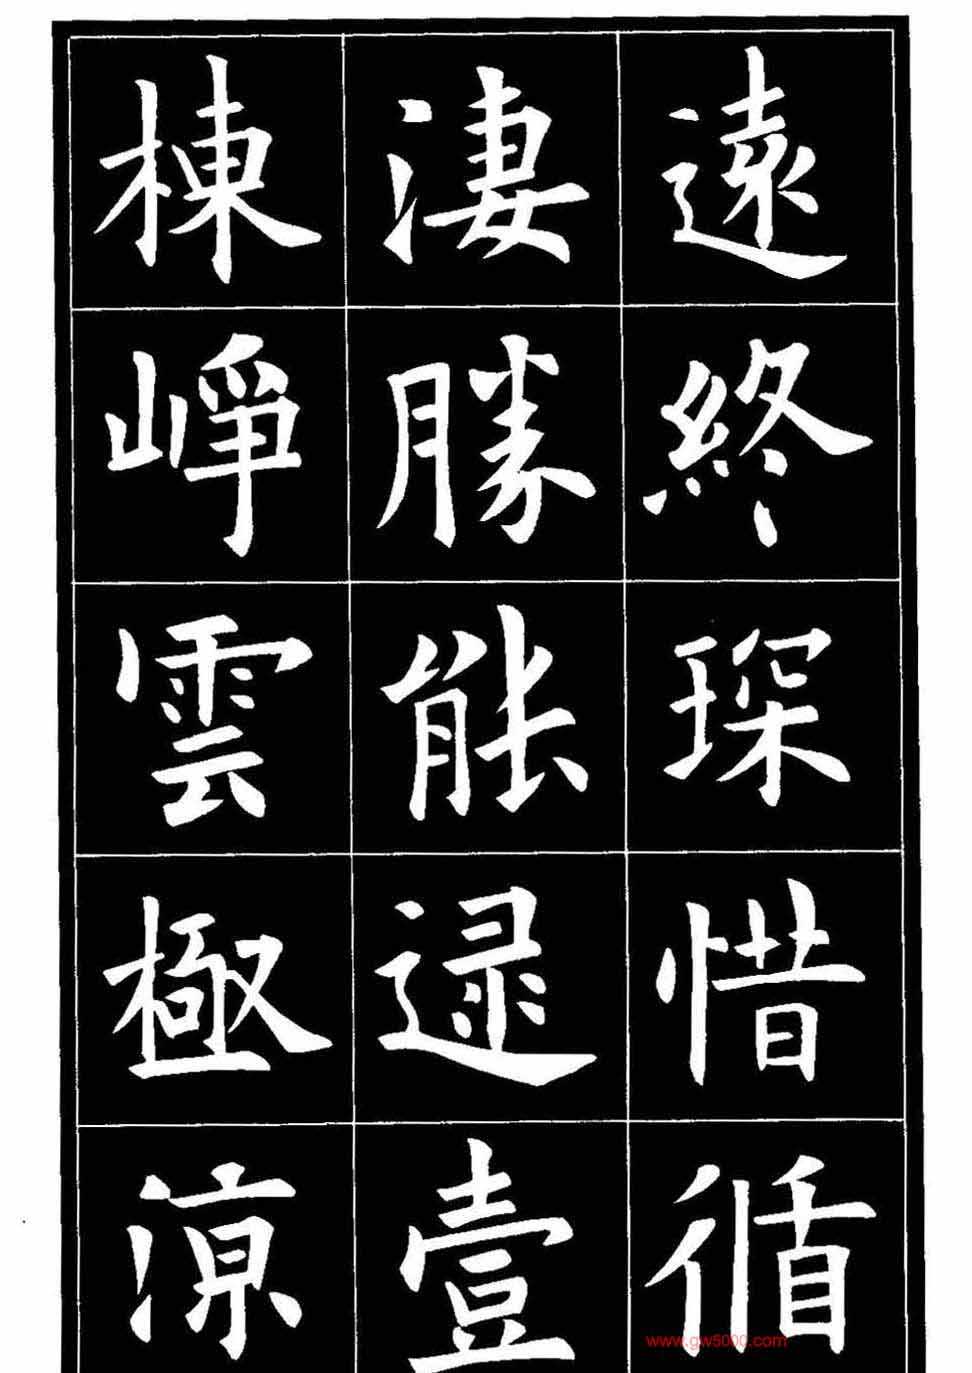 遠終琛惜循
淒勝能逯壹
棟崢雲極涼
www.gw5000.com